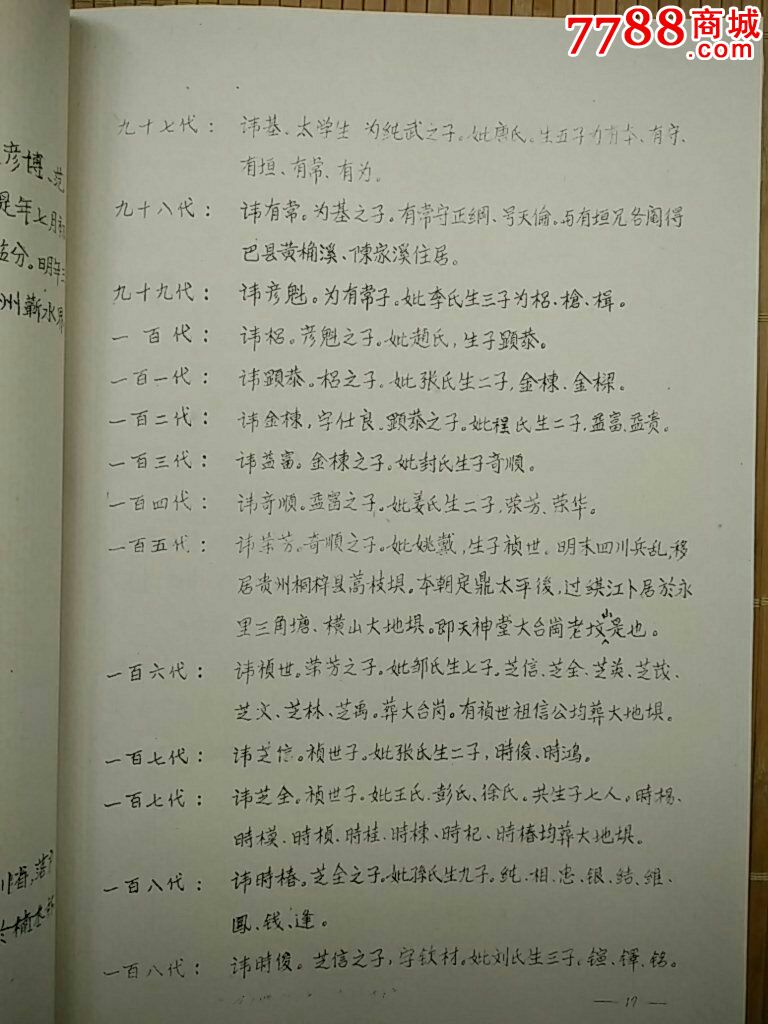 7788商城
.com
彦博、范
是年七月初
五分。明年三
州蕲水界
九十七代： 讳基、太学生 为纯武之子。妣唐氏。生五子为有本、有守、
有垣、有常、有为。
九十八代： 讳有常。为基之子。有常守正綱、号天倫。与有垣兄各阄得
巴县黄桷溪、陳家溪住居。
九十九代： 讳彦魁。为有常子。妣李氏生三子为梠、槍、楫。
一百代： 讳梠。彦魁之子。妣趙氏，生子顕恭。
一百一代： 讳顕恭。梠之子。妣张氏生二子，金棟、金樑。
一百二代： 讳金棟，字仕良。顕恭之子。妣程氏生二子，益富、益贵。
一百三代： 讳益富。金棟之子。妣封氏生子奇順。
一百四代： 讳奇順。益富之子。妣姜氏生二子，荣芳、荣华。
一百五代： 讳荣芳。奇順之子。妣姚戴，生子禎世。明末四川兵乱，移
居贵州桐梓县蒿枝垻。本朝定鼎太平後，过綦江卜居於永
里三角塘、横山大地垻。即天神堂大台崗老坟山是也。
一百六代： 讳禎世。荣芳之子。妣邹氏生七子。芝信、芝全、芝英、芝茂、
芝文、芝林、芝禹。葬大台岗。有禎世祖信公均葬大地垻。
一百七代： 讳芝信。禎世子。妣张氏生二子，時俊、時鴻。
一百七代： 讳芝全。禎世子。妣王氏、彭氏、徐氏。共生子七人。時楊、
時模、時楨、時桂、時棟、時杞、時椿均葬大地垻。
一百八代： 讳時椿。芝全之子。妣孫氏生九子。纯、相、忠、银、结、維、
鳳、钱、逢。
一百八代： 讳時俊。芝信之子，字钦材。妣刘氏生三子。鍹、鐸、铭。
— 17 —